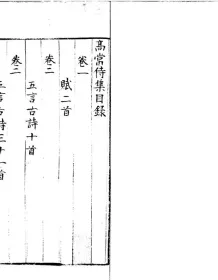 高常侍集目錄
卷一
賦二首
卷二
五言古詩十首
卷三
五言古詩三十一首